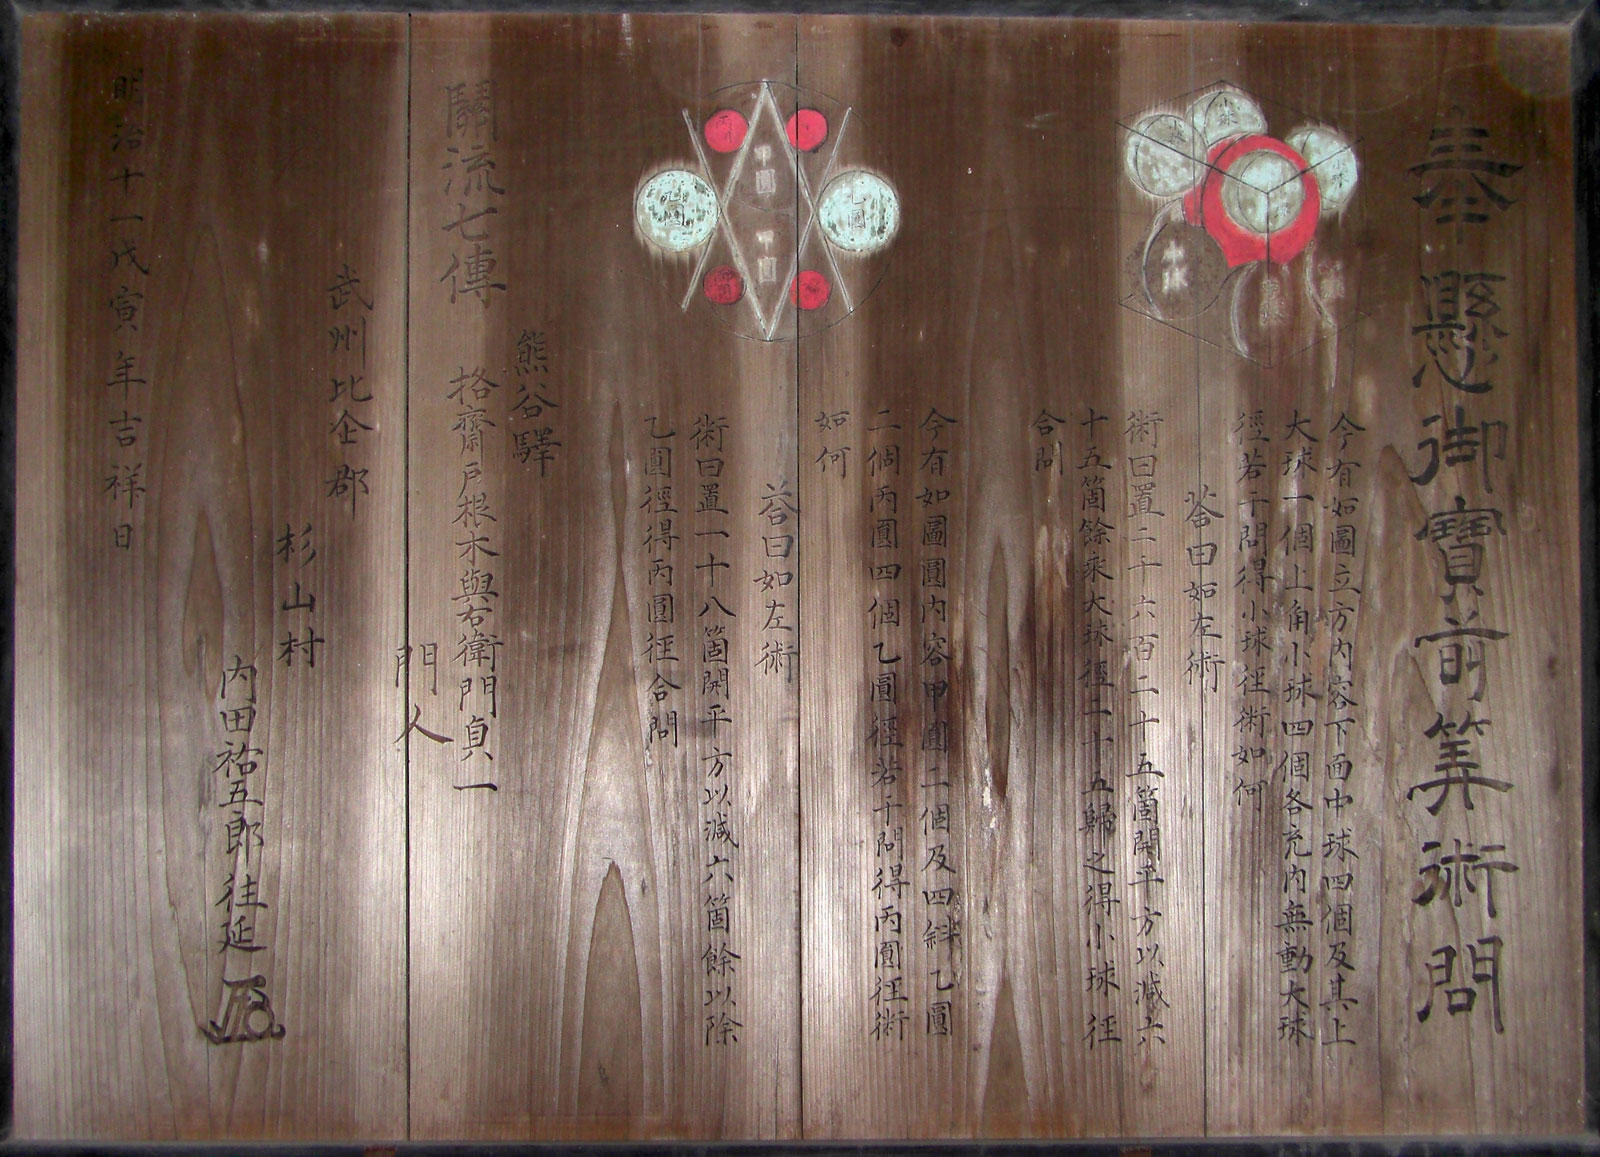 奉懸御寶前筭術問
小球
小球
小球
今有如圖立方内容下面中球四個及其上
大球一個上角小球四個各充内無動大球
徑若干問得小球徑術如何
答曰如左術
術曰置二千六百二十五箇開平方以減六
十五箇餘乘大球徑二十五歸之得小球徑
合問
甲圓
甲圓
乙圓
乙圓
丙圓
丙圓
今有如圖圓内容甲圓二個及四斜乙圓
二個丙圓四個乙圓徑若干問得丙圓徑術
如何
答曰如左術
術曰置一十八箇開平方以減六箇餘以除
乙圓徑得丙圓徑合問
關流七傳
熊谷驛
格齋戸根木與右衛門貞一
門人
武州比企郡
杉山村
内田祐五郎往延
明治十一戊寅年吉祥日